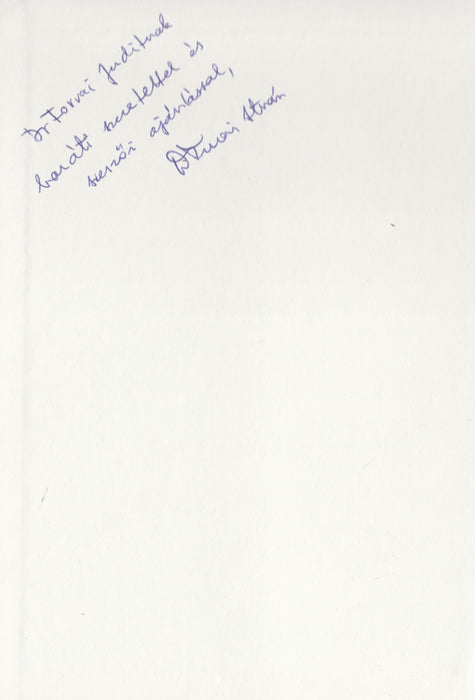 Dr Forrai Juditnak
baráti szeretettel és
szerzői ajánlással,
István